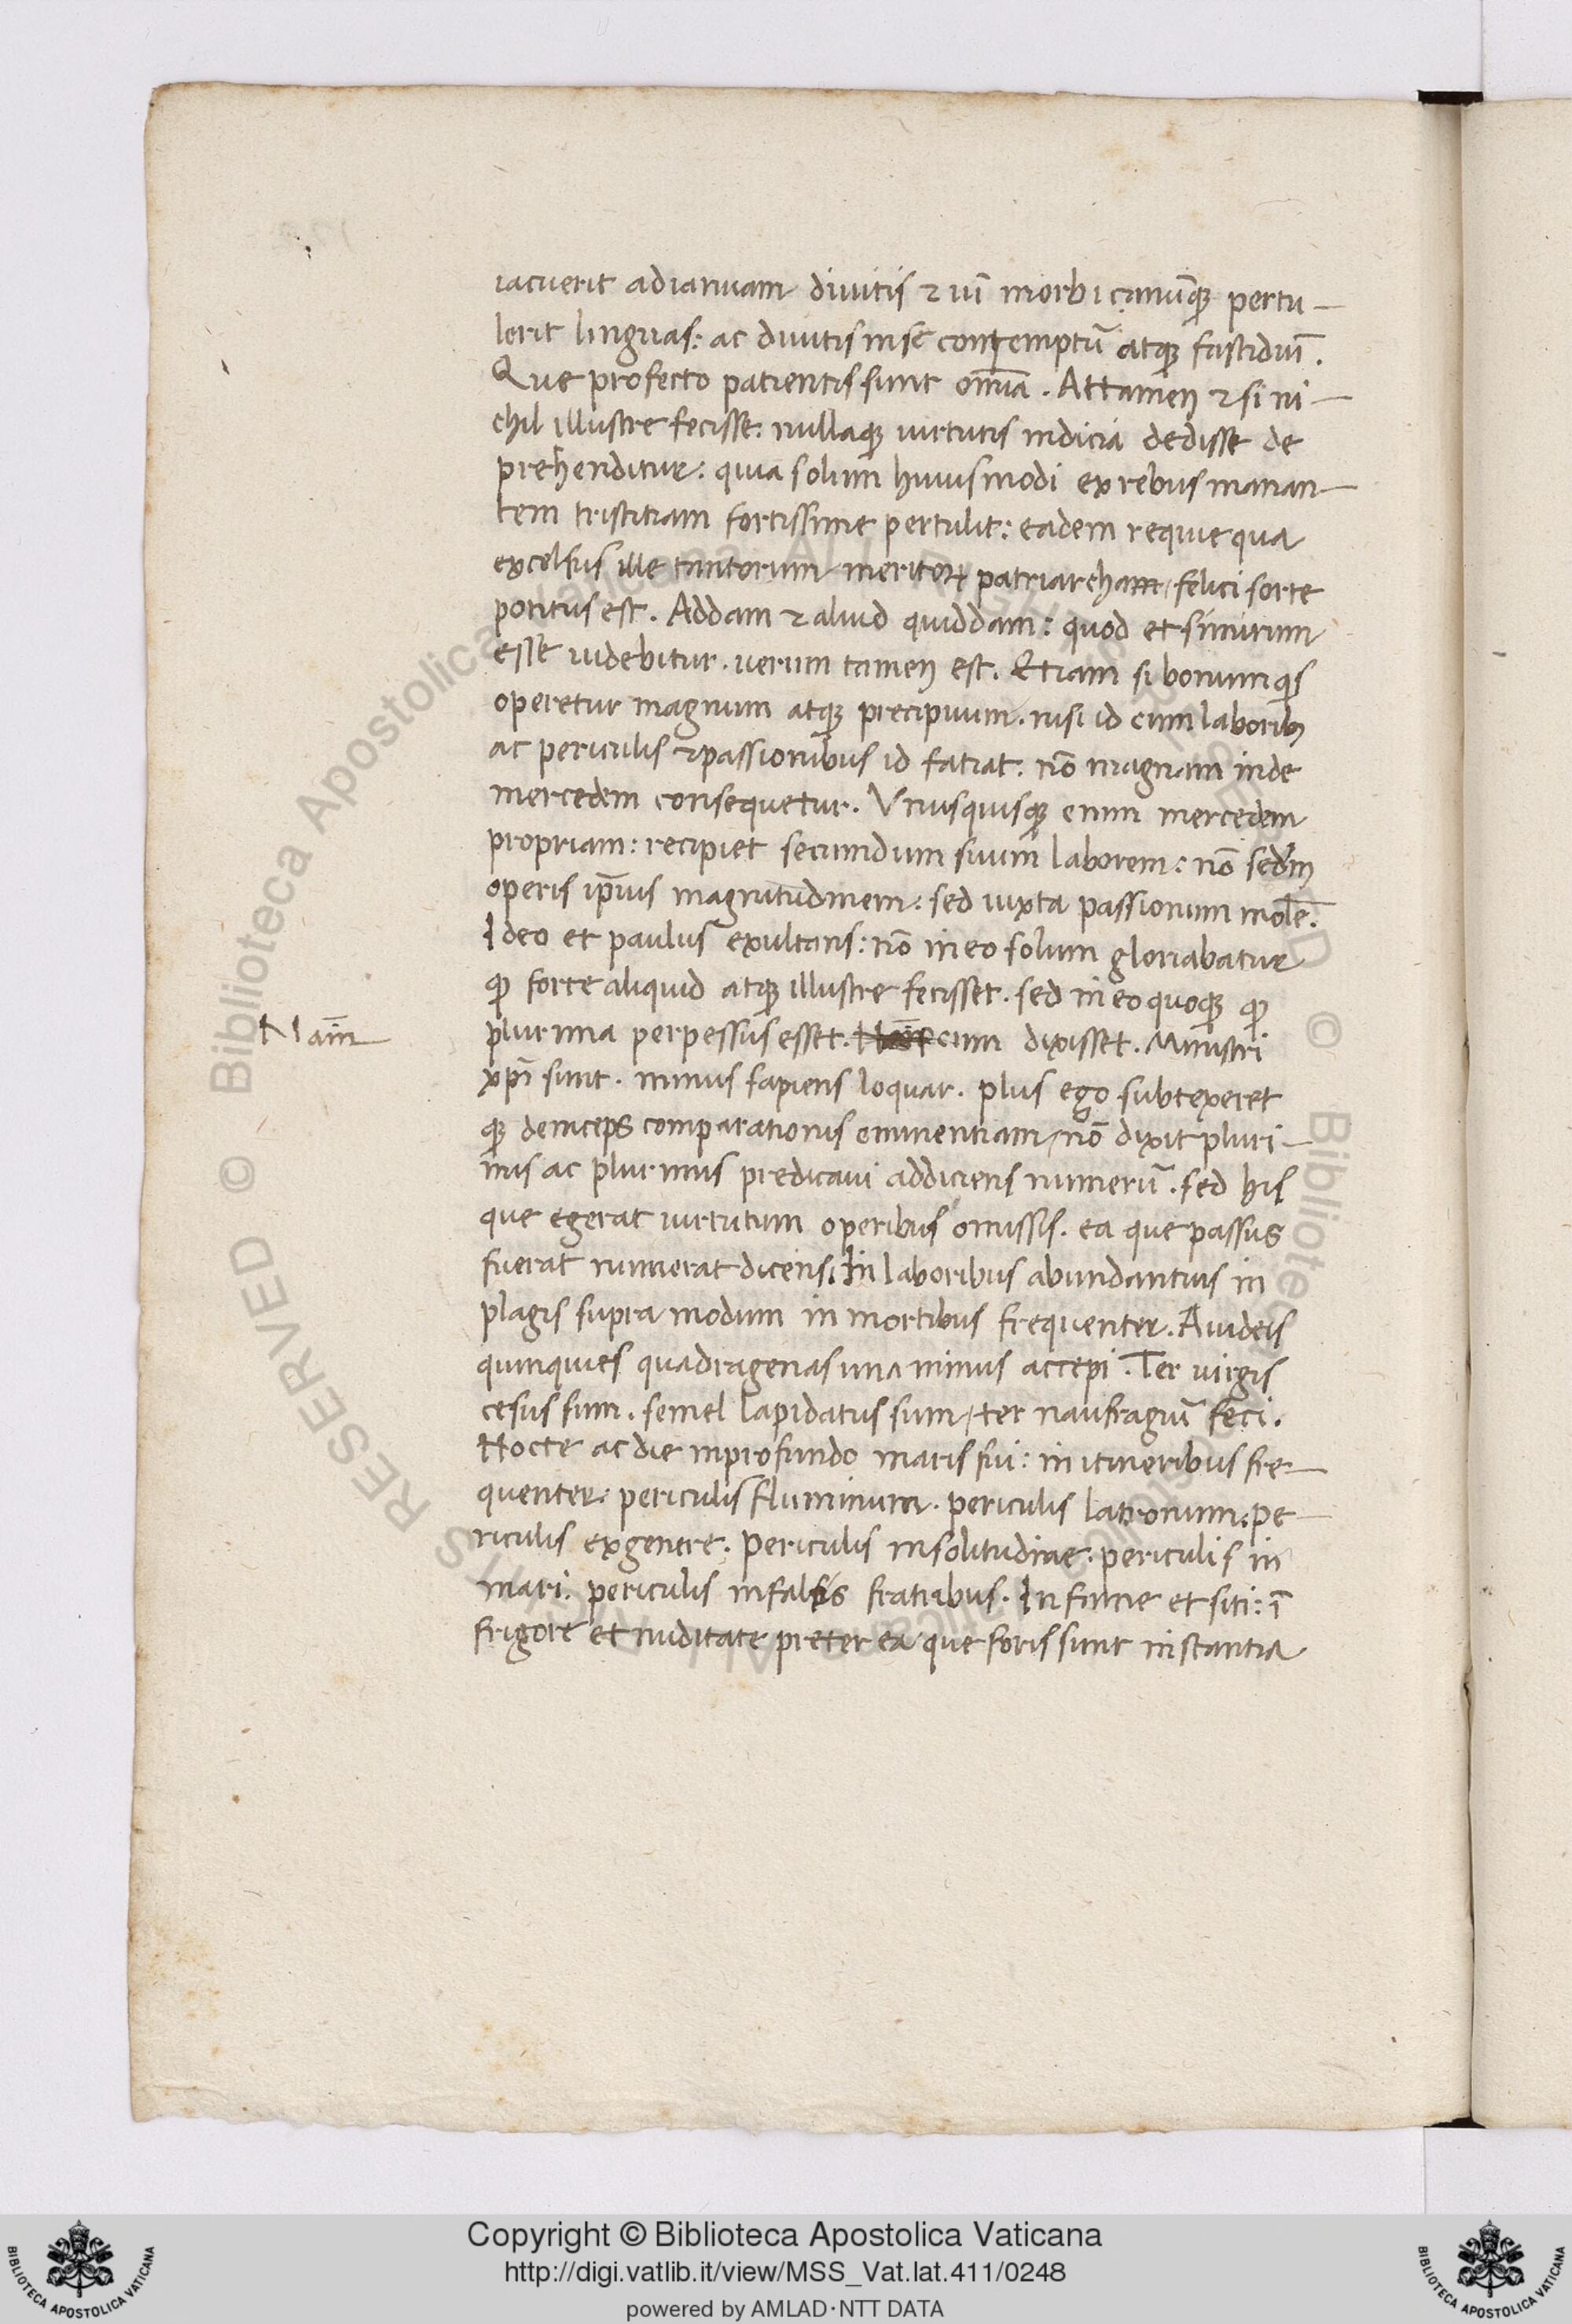 iacuerit ad ianuam diuitis & uĩ morbi canũqꝫ pertu-
lerit linguas: ac diuitis in se contemptũ atqꝫ fastidiũ.
Que profecto patientis sunt om̃ia. Attamen & si ni-
chil illustre fecisse: nullaqꝫ uirtutis indicia dedisse de
prehenditur: quia solum huiusmodi ex rebus manan-
tem tristitiam fortissime pertulit: eadem requie qua
excelsus ille tantorum meritoꝝ patriarcham / felici sorte
potitus est. Addam & aliud quiddam: quod et si mirum
esse uidebitur. uerum tamen est. Etiam si bonum qis
operetur magnum atqꝫ precipuum. nisi id cum laboribꝫ
ac periculis & passionibus id faciat: nõ magnam inde
mercedem consequetur. Vnusquisqꝫ enim mercedem
propriam: recipiet secundum suum laborem: nõ secdm
operis ip̃ius magnitudinem: sed iuxta passionum molẽ.
Ideo et paulus exultans: nõ in eo solum gloriabatur
qꝫ forte aliquid atqꝫ illustre fecisset. sed in eo quoqꝫ qꝫ
Nam̃
plurima perpessus esset. cum dixisset. Ministri
xp̃i sunt. minus sapiens loquar. plus ego subtexeret
qꝫ deinceps comparationis eminentiam / nõ dixit pluri-
mis ac plurimis predicaui addiciens numerũ. sed his
que egerat uirtutum operibus omissis. ea que passus
fuerat numerat dicens. In laboribus abundantius in
plagis supra modum in mortibus frequenter. A iudeis
quinquies quadragenas una minus accepi. Ter virgis
cesus sum. semel lapidatus sum / ter naufragiũ feci.
Nocte ac die in profundo maris fui: in itineribus fre-
quenter: periculis fluminum. periculis latronum: pe-
riculis ex gentre. Periculis in solitudine. periculis in
mari. periculis in falsis fratribus. In fame et siti: ĩ
frigore et nuditate preter ea que foris sunt instantia
Copyright © Biblioteca Apostolica Vaticana
http://digi.vatlib.it/view/MSS_Vat.lat.411/0248
powered by AMLAD·NTT DATA